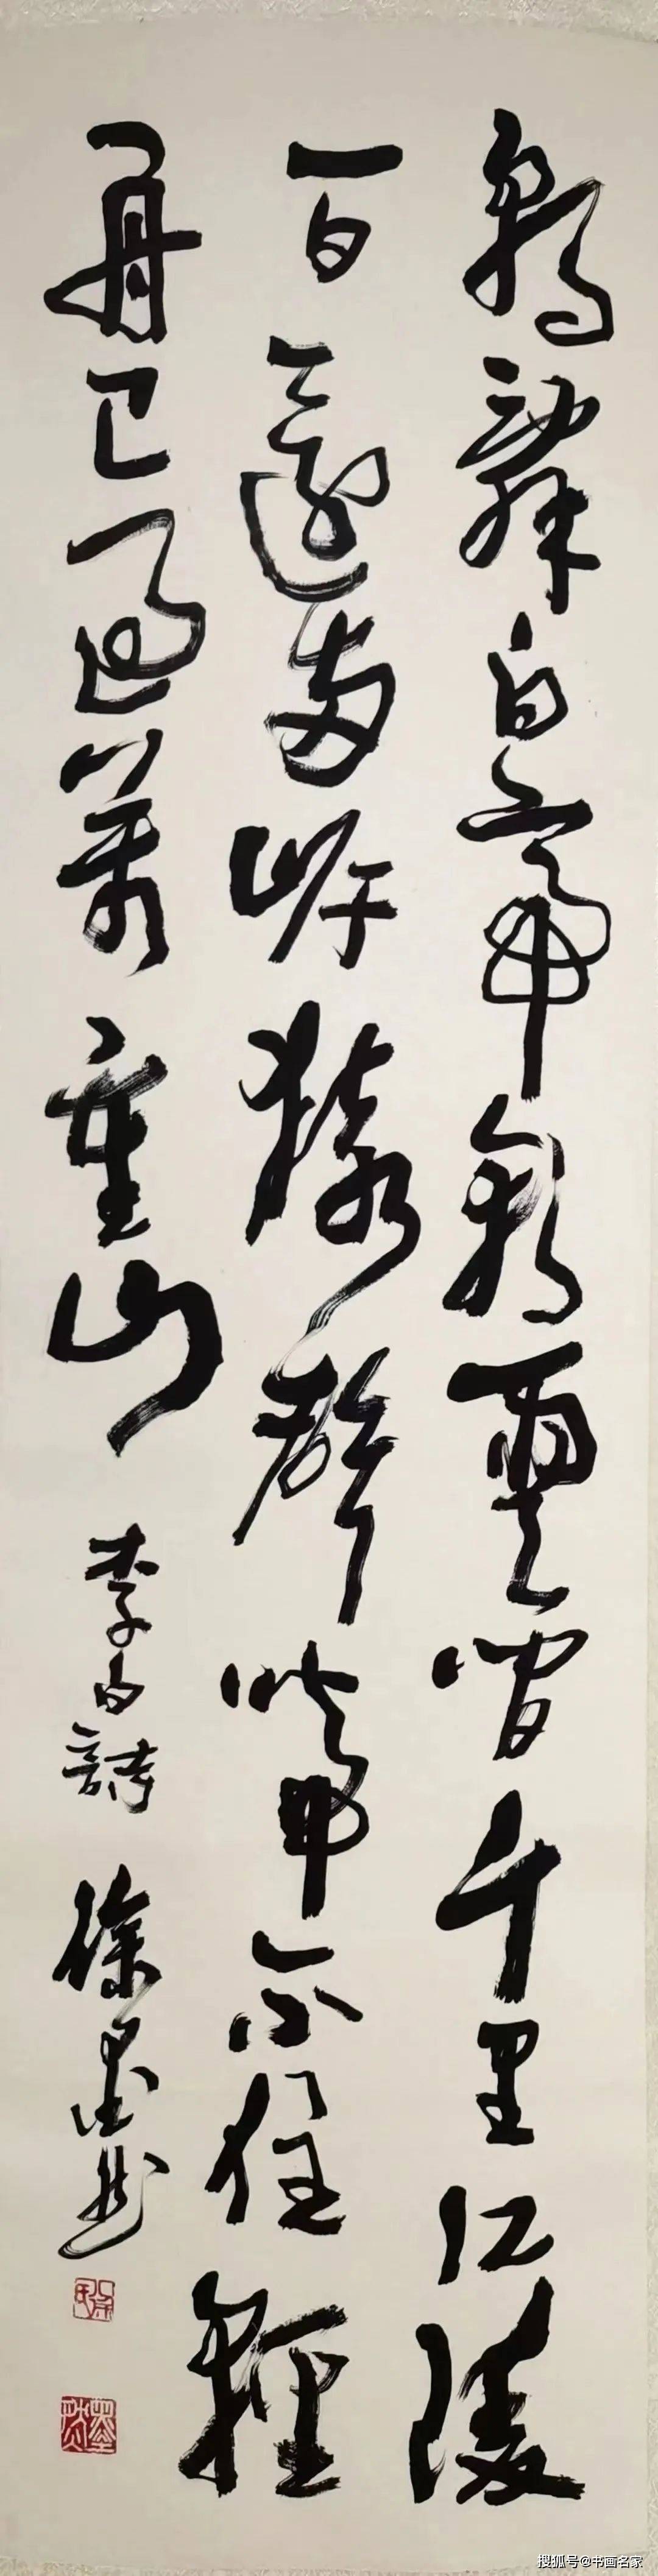 朝辭白帝彩雲間千里江陵
一日還兩岸猿聲啼不住輕
舟已過萬重山 李白詩 徐墨
搜狐号@书画名家